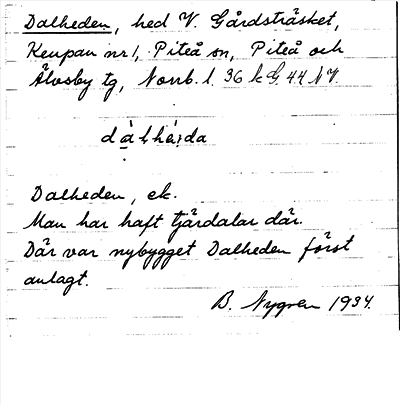 Dalheden, hed V. Gårdsträsket,
Keupan nr 1, Piteå sn, Piteå och
Älvsby tg, Norrb. l. 36 k G. 44 N V.
dàlhè̩da
Dalheden, ek.
Man har haft tjärdalar där.
Där var nybygget Dalheden först
anlagt.
B. Nygren 1934.